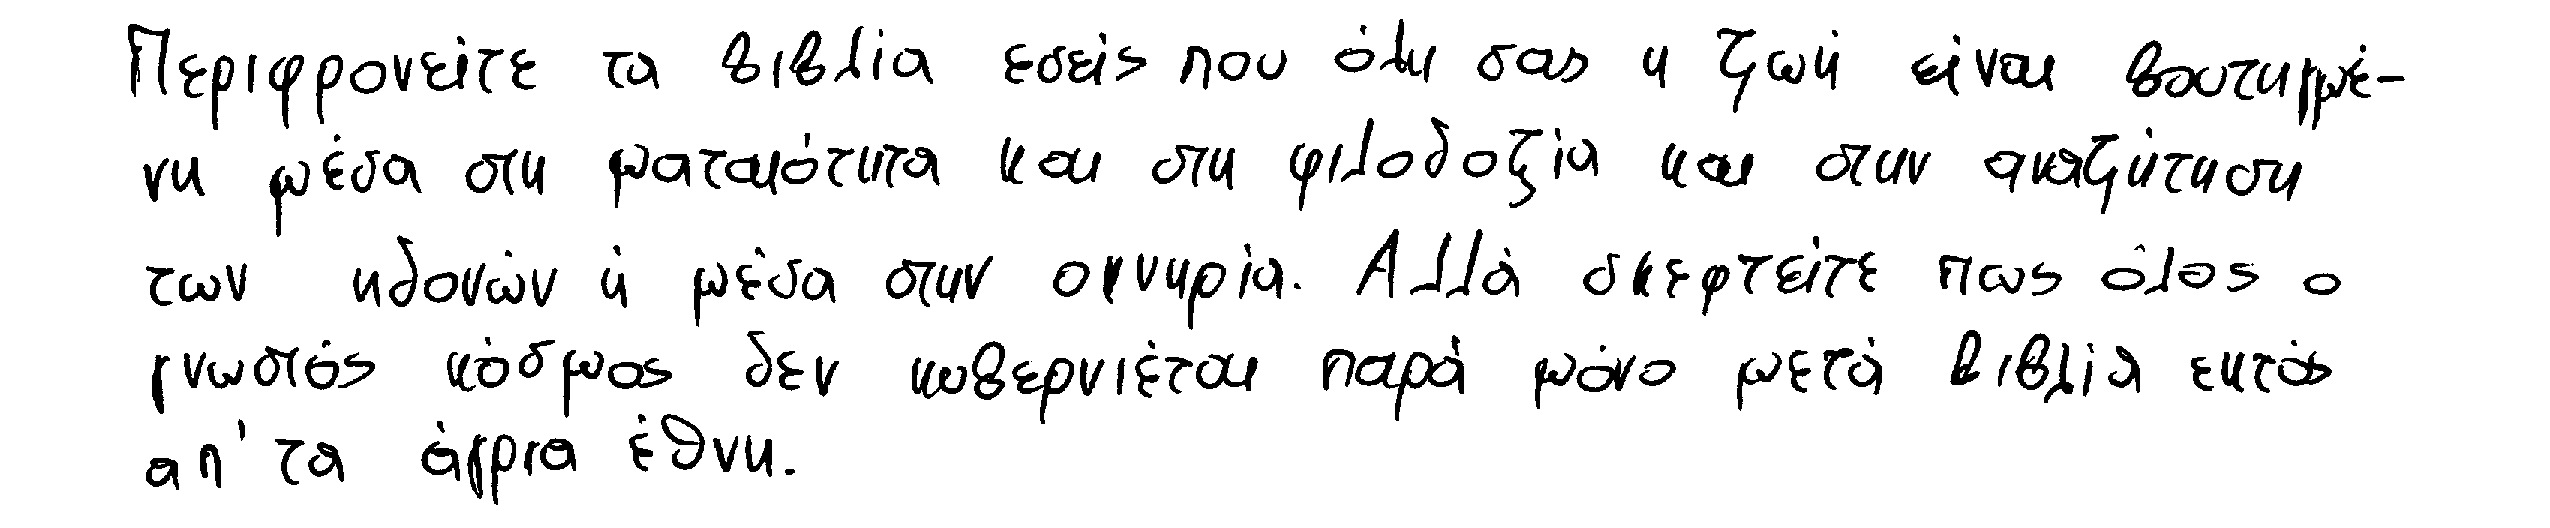 Περιφρονείτε τα βιβλία εσείς που όλη σας η ζωή είναι βουτηγμέ-
νη μέσα στη ματαιότητα και στη φιλοδοξία και στην αναζήτηση
των ηδονών ή μέσα στην οκνηρία. Αλλά σκεφτείτε πως όλος ο
γνωστός κόσμος δεν κυβερνιέται παρά μόνο μετά βιβλία εκτός
απ' τα άγρια έθνη.